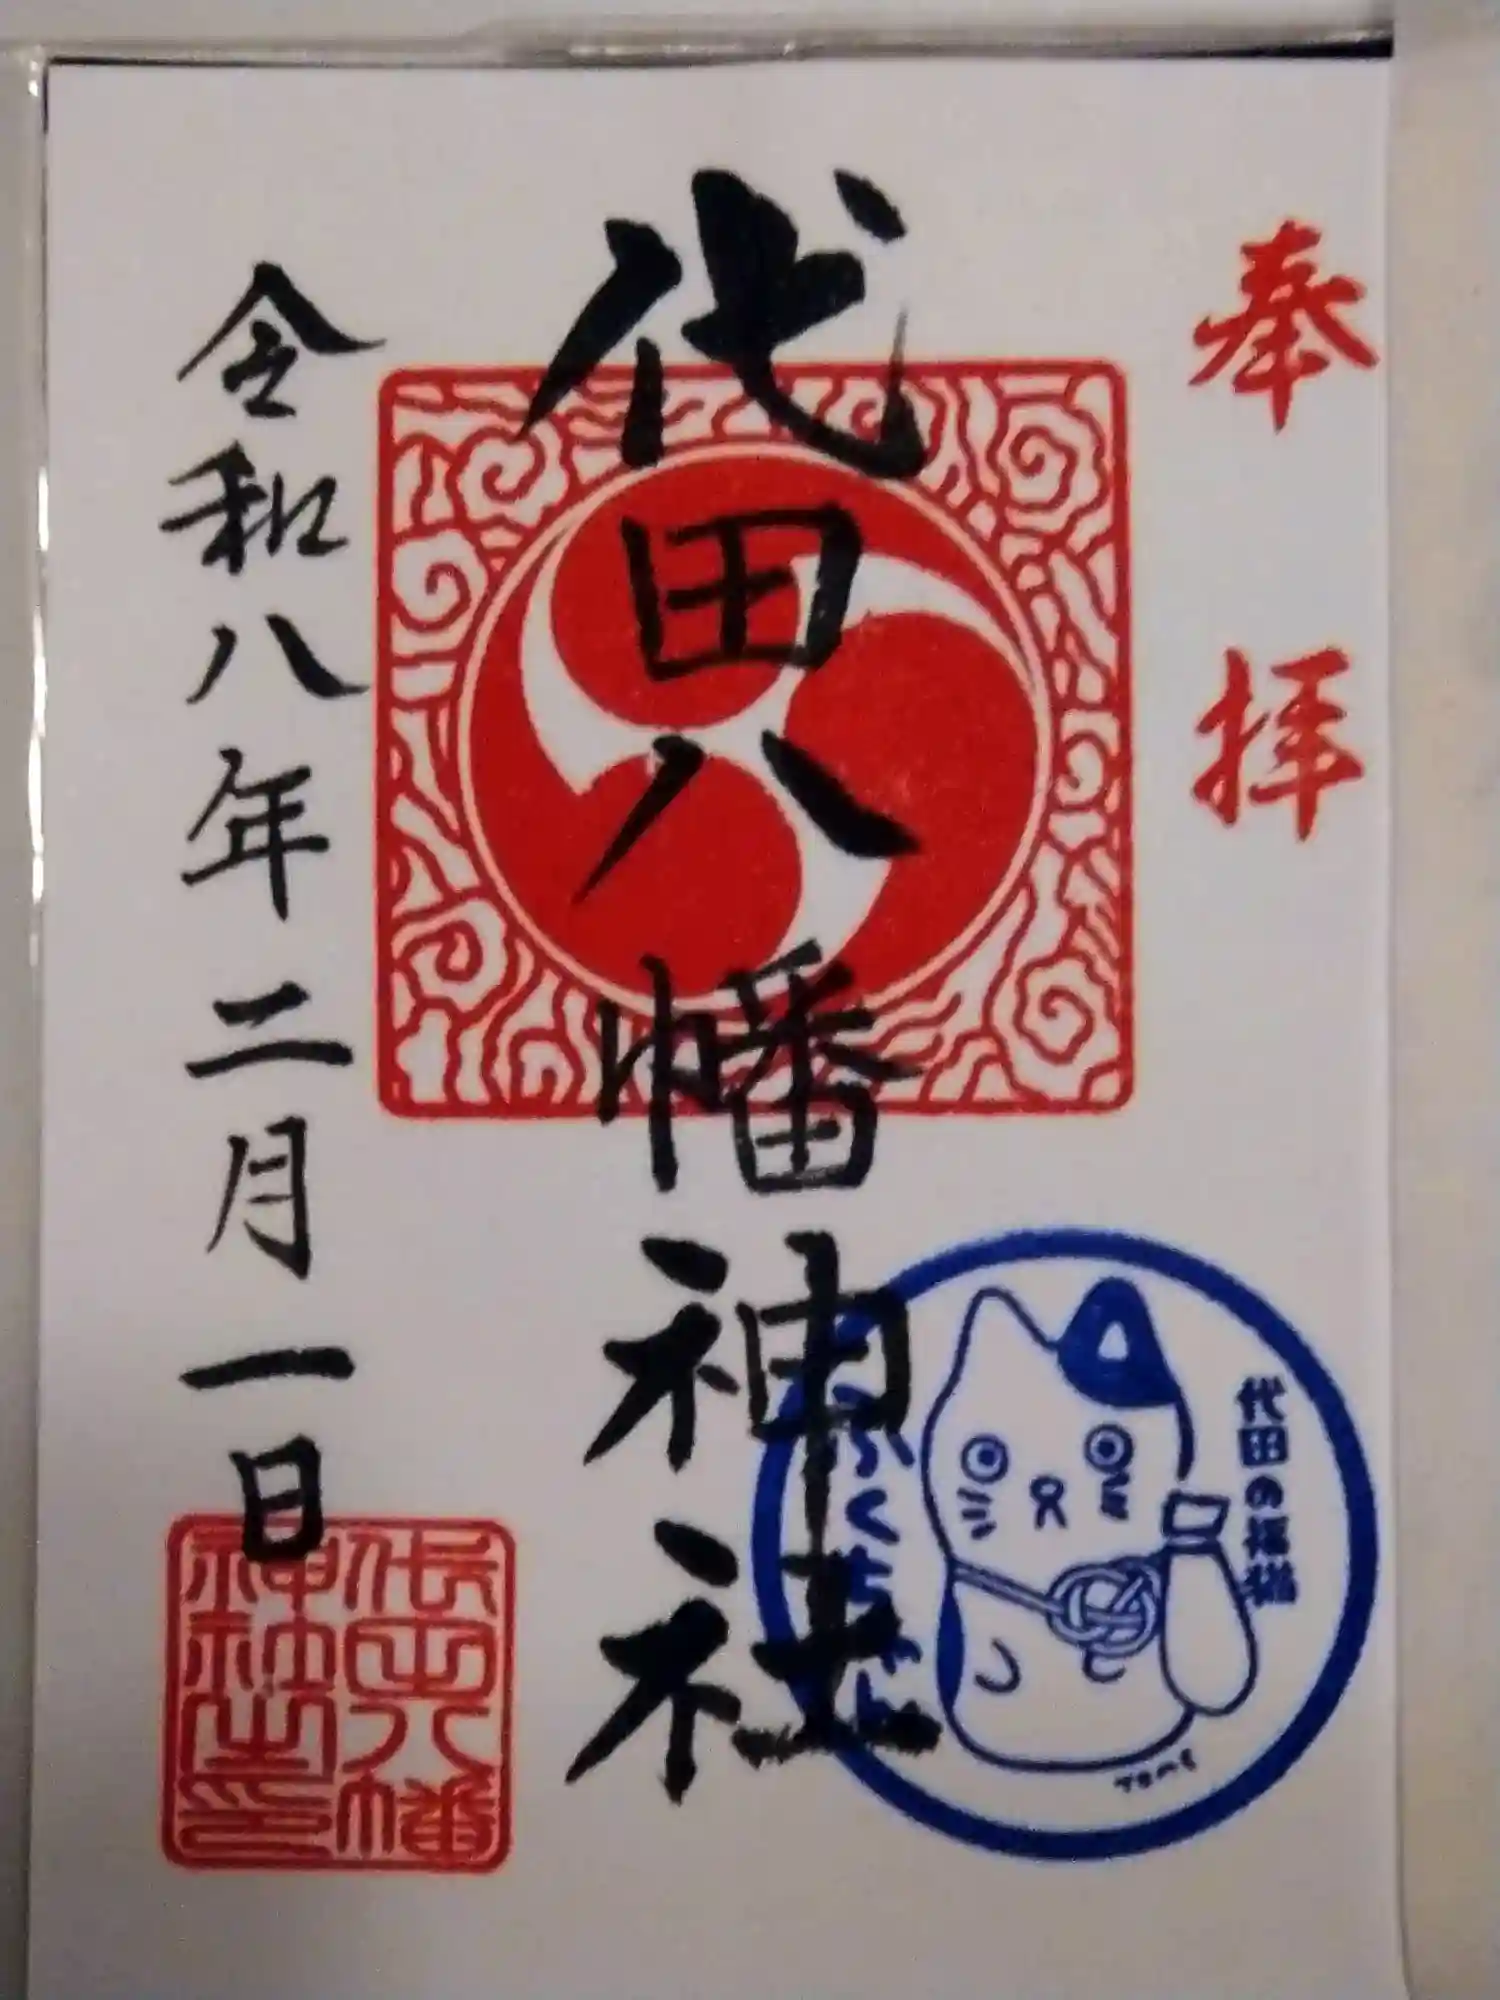 奉拝
代田八幡神社
令和八年二月一日
代田八幡
神社之印
代田の福猫
ふくちゃん
TOMC